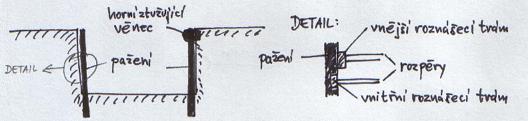 horní ztužující
věnec
DETAIL
pažení
DETAIL:
pažení
vnější roznášecí trám
rozpěry
vnitřní roznášecí trám